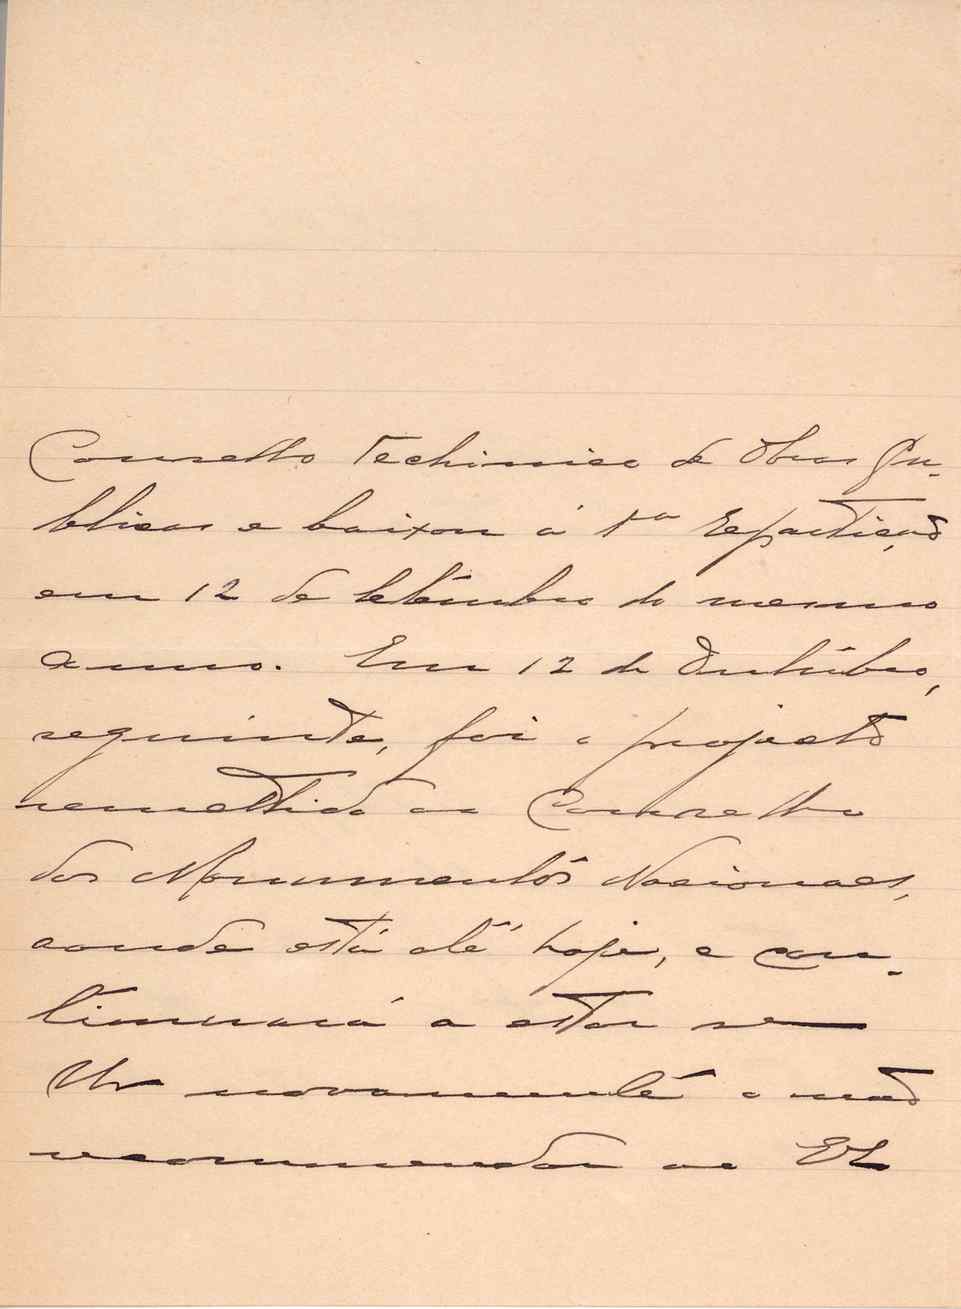 Conselho Techinico de Obras Pu-
blicas e baixou á 1ª Repartição
em 12 de Setembro do mesmo
anno. Em 12 de Outubro,
seguinte, foi o projecto
remettido ao Conselho
dos Monumentos Nacionaes,
aonde está até hoje, e con-
tinuará a estar se
V. novamente o não
recommendar ao